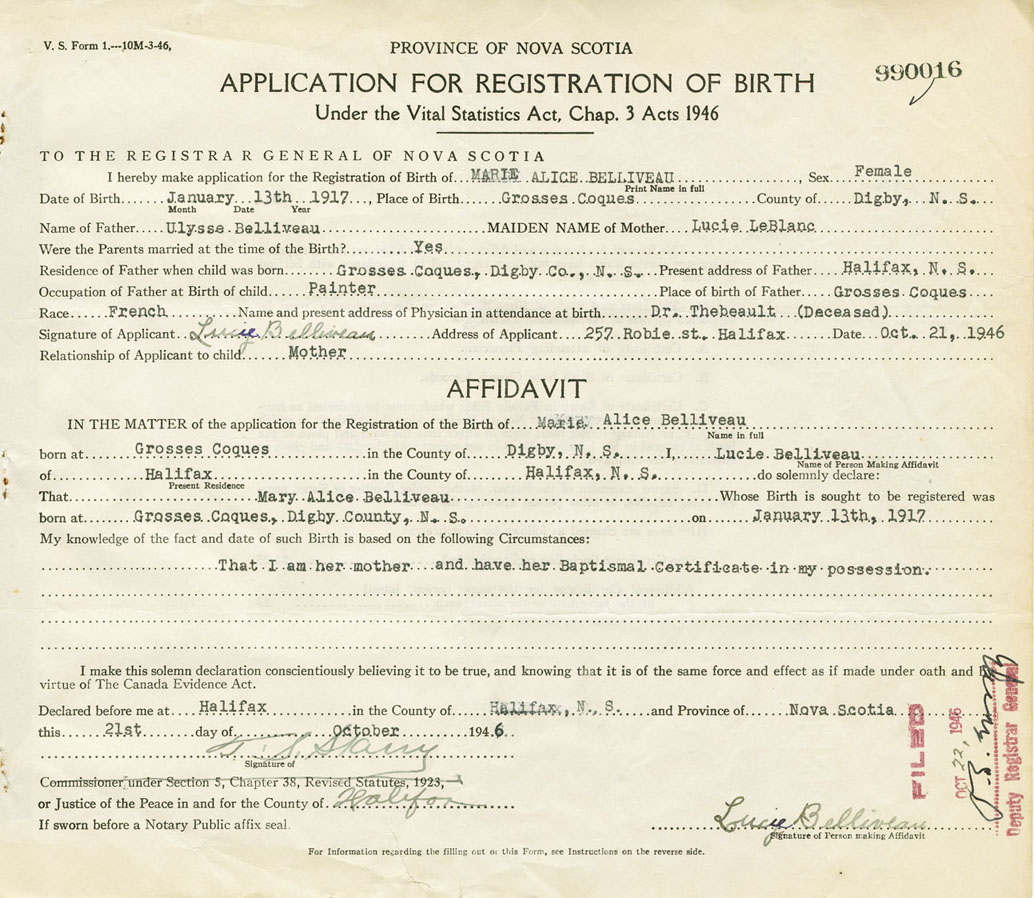 V. S. Form 1.---10M-3-46,
PROVINCE OF NOVA SCOTIA
990016
APPLICATION FOR REGISTRATION OF BIRTH
Under the Vital Statistics Act, Chap. 3 Acts 1946
TO THE REGISTRAR GENERAL OF NOVA SCOTIA
I hereby make application for the Registration of Birth of MARIE ALICE BELLIVEAU, Sex Female
Print Name in full
Date of Birth January 13th 1917, Place of Birth Grosses Coques County of Digby, N. S.
Month Date Year
Name of Father Ulysse Belliveau MAIDEN NAME of Mother Lucie LeBlanc
Were the Parents married at the time of the Birth? Yes
Residence of Father when child was born Grosses Coques, Digby Co., N. S. Present address of Father Halifax, N. S.
Occupation of Father at Birth of child Painter Place of birth of Father Grosses Coques
Race French Name and present address of Physician in attendance at birth Dr. Thebeault (Deceased)
Signature of Applicant Lucie Belliveau Address of Applicant 257 Robie st. Halifax Date Oct. 21, 1946
Relationship of Applicant to child Mother
AFFIDAVIT
IN THE MATTER of the application for the Registration of the Birth of Marie Alice Belliveau
Name in full
born at Grosses Coques in the County of Digby, N. S. I, Lucie Belliveau
Name of Person Making Affidavit
of Halifax in the County of Halifax, N. S. do solemnly declare:
Present Residence
That Mary Alice Belliveau Whose Birth is sought to be registered was
born at Grosses Coques, Digby County, N. S. on January 13th, 1917
My knowledge of the fact and date of such Birth is based on the following Circumstances:
That I am her mother and have her Baptismal Certificate in my possession.
I make this solemn declaration conscientiously believing it to be true, and knowing that it is of the same force and effect as if made under oath and
virtue of The Canada Evidence Act.
Declared before me at Halifax in the County of Halifax, N. S. and Province of Nova Scotia
this 21st day of October 1946
Signature of
Commissioner under Section 5, Chapter 38, Revised Statutes, 1923,
or Justice of the Peace in and for the County of Halifax
If sworn before a Notary Public affix seal.
Lucie Belliveau
Signature of Person making Affidavit
FILED
OCT 22, 1946
Deputy Registrar General
For Information regarding the filling out of this Form, see Instructions on the reverse side.